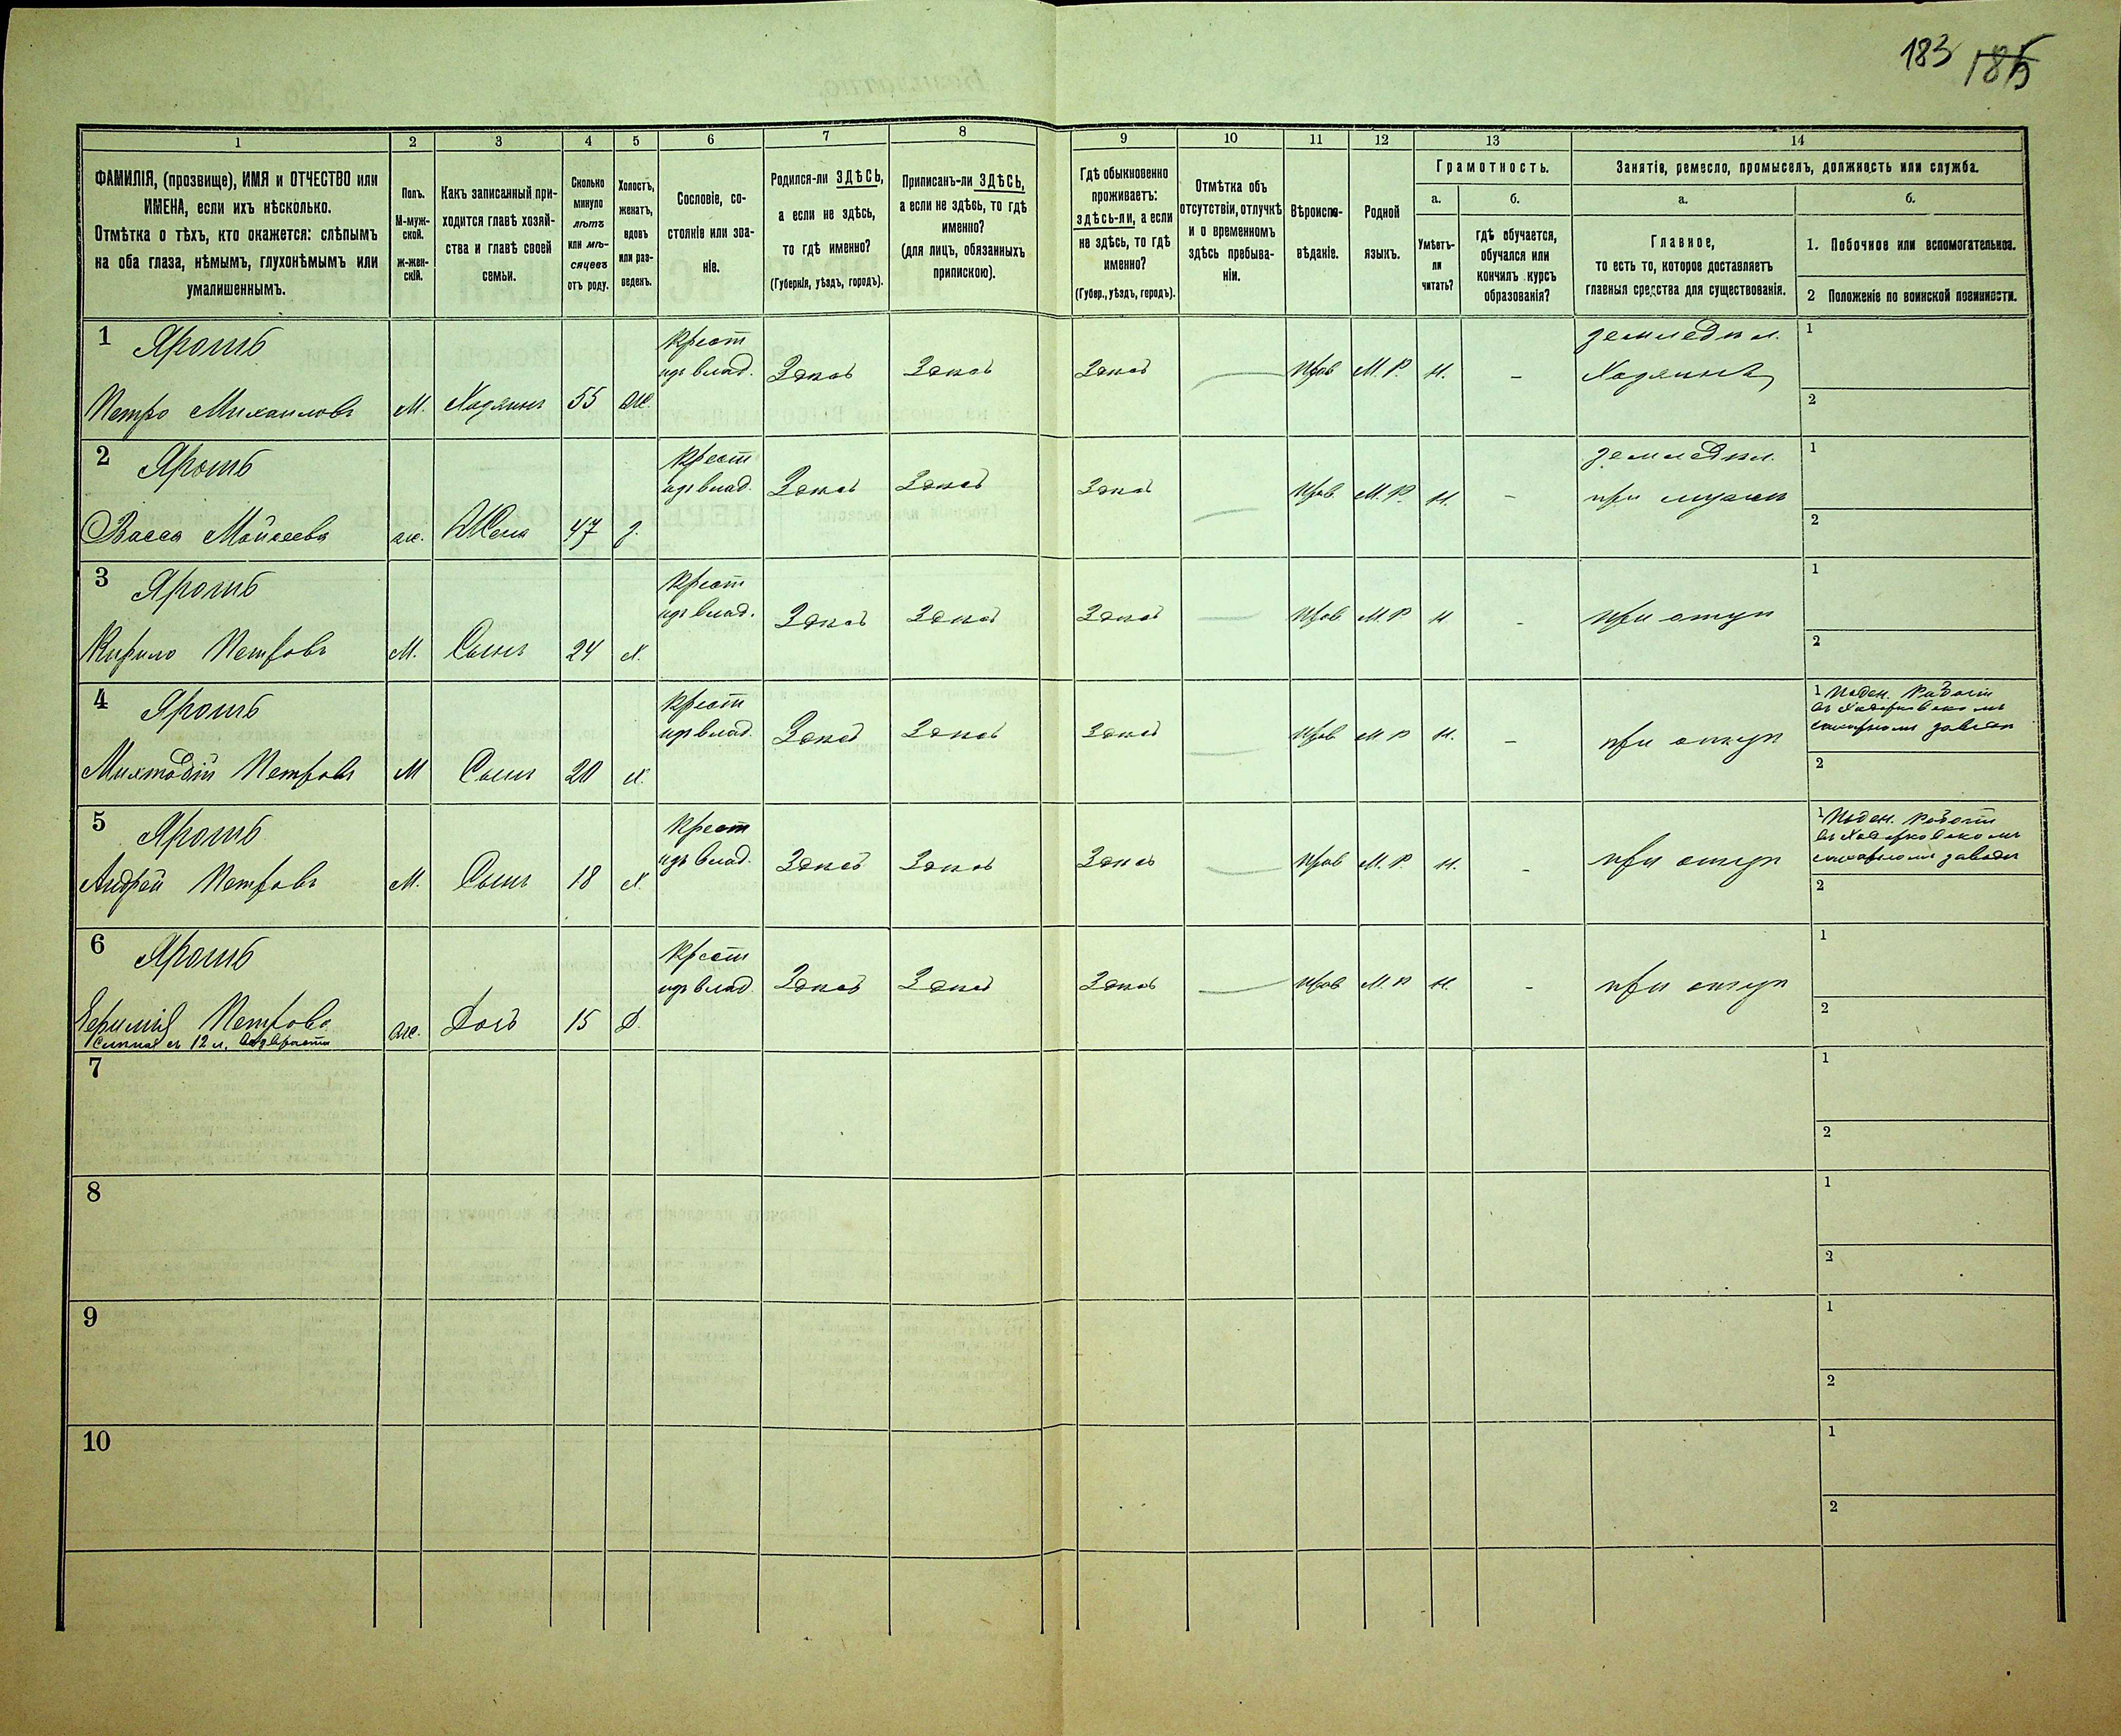 183 185
1
2
3
4
5
6
7
8
9
10
11
12
13
14
ФАМИЛІЯ, (прозвище), ИМЯ и ОТЧЕСТВО или
ИМЕНА, если ихъ нѣсколько.
Отмѣтка о тѣхъ, кто окажется: слѣпымъ
на оба глаза, нѣмымъ, глухонѣмымъ или
умалишеннымъ.
Полъ.
М-муж-
ской.
ж-жен-
скій.
Какъ записанный при-
ходится главѣ хозяй-
ства и главѣ своей
семьи.
Сколько
минуло
лѣтъ
или мѣ-
сяцевъ
отъ роду.
Холостъ,
женатъ,
вдовъ
или раз-
веденъ.
Сословіе, со-
стояніе или зва-
ніе.
Родился-ли ЗДѢСЬ,
а если не здѣсь,
то гдѣ именно?
(Губернія, уѣздъ, городъ).
Приписанъ-ли ЗДѢСЬ,
а если не здѣсь, то гдѣ
именно?
(для лицъ, обязанныхъ
припискою).
Гдѣ обыкновенно
проживаетъ:
здѣсь-ли, а если
не здѣсь, то гдѣ
именно?
(Губер., уѣздъ, городъ).
Отмѣтка объ
отсутствіи, отлучкѣ
и о временномъ
здѣсь пребыва-
ніи.
Вѣроиспо-
вѣданіе.
Родной
языкъ.
Грамотность.
а.
Умѣетъ-
ли
читать?
б.
гдѣ обучается,
обучался или
кончилъ курсъ
образованія?
Занятіе, ремесло, промыселъ, должность или служба.
а.
Главное,
то есть то, которое доставляетъ
главныя средства для существованія.
б.
1. Побочное или вспомогательное.
2 Положеніе по воинской повинности.
1 Ярошъ
Петро Михаиловъ
М.
Хозяинъ
55
Ж.
Крест
изъ влад.
Здѣсь
Здѣсь
Здѣсь
—
Прав
М. Р.
Н.
–
земледѣл.
Хозяинъ
1
2
2 Ярошъ
Васса Мойсеева
ж.
Жена
47
З.
Крест
изъ влад.
Здѣсь
Здѣсь
Здѣсь
—
Прав
М. Р.
Н.
–
земледѣл.
при мужѣ
1
2
3 Ярошъ
Кирило Петровъ
М.
Сынъ
24
Х.
Крест
изъ влад.
Здѣсь
Здѣсь
Здѣсь
—
Прав
М. Р
Н
–
при отцѣ
1
2
4 Ярошъ
Петровъ
М
Сынъ
20
Х.
Крест
изъ влад.
Здѣсь
Здѣсь
Здѣсь
—
Прав
М Р
Н.
–
при отцѣ
1 Поден. Работ
въ Ходорковскомъ
сахарномъ заводѣ
2
5 Ярошъ
Андрей Петровъ
М.
Сынъ
18
Х.
Крест
изъ влад.
Здѣсь
Здѣсь
Здѣсь
—
Прав
М. Р.
Н.
–
при отцѣ
1 Поден. Работ
въ Ходорковскомъ
сахарномъ заводѣ
2
6 Ярошъ
Петрова
съ 12 л. возраста
Ж.
Дочь
15
Д.
Крест
изъ влад
Здѣсь
Здѣсь
Здѣсь
—
Прав
М. Р
Н.
–
при отцѣ
1
2
7
1
2
8
1
2
9
1
2
10
1
2